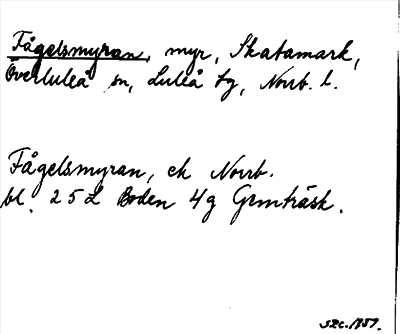 Fågelsmyran, myr, Skatamark,
Överluleå sn, Luleå tg, Norrb. l.
Fågelsmyran, ek Norrb.
bl. 25 L Boden 4g Grmträsk.